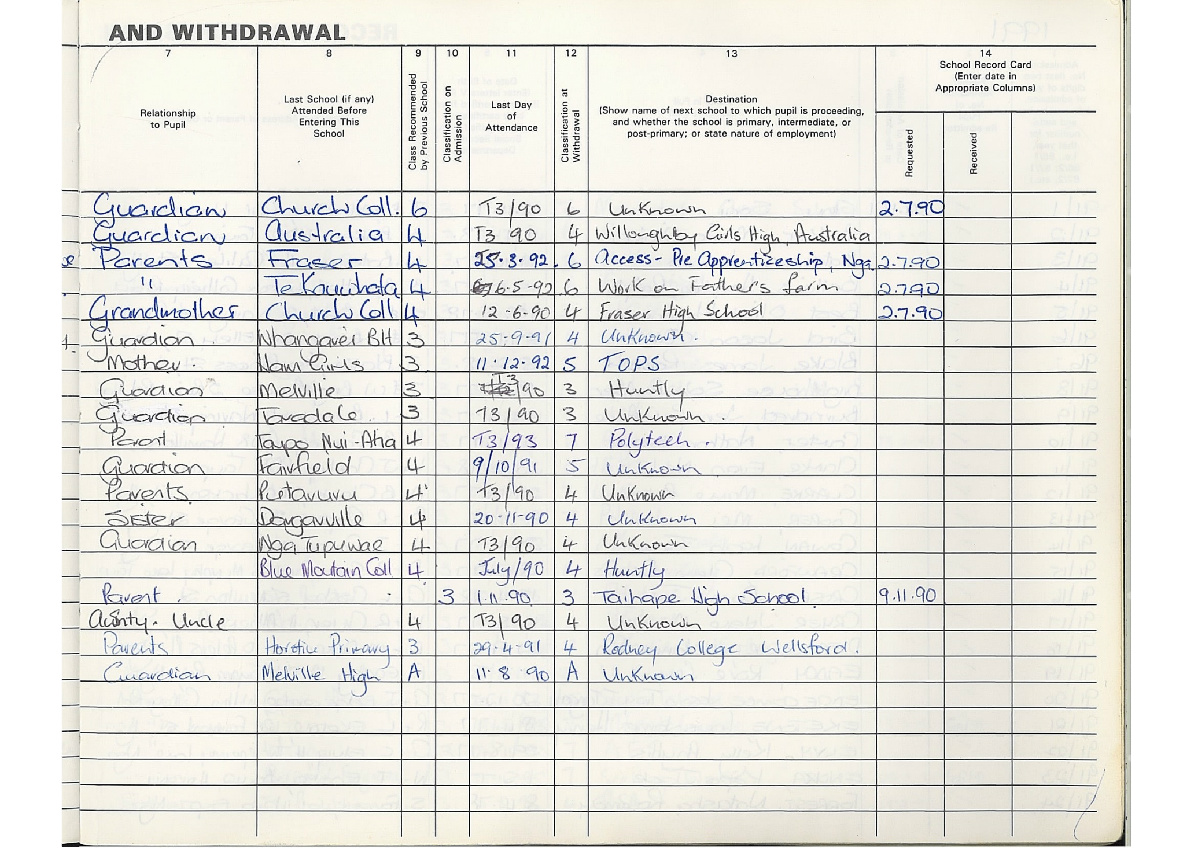 AND WITHDRAWAL
7 8 9 10 11 12 13 14
Relationship to Pupil
Last School (if any) Attended Before Entering This School
Class Recommended by Previous School
Classification on Admission
Last Day of Attendance
Classification at Withdrawal
Destination
(Show name of next school to which pupil is proceeding, and whether the school is primary, intermediate, or post-primary; or state nature of employment)
School Record Card
(Enter date in Appropriate Columns)
Requested
Received
Guardian Church Coll. 6 T3/90 6 Unknown 2.7.90
Guardian Australia 4 T3 90 4 Willoughby Girls High, Australia
Parents Fraser 4 25.3.92. 6 Access- Pre Apprenticeship, Nga 2.7.90
" Te Kauwhata 4 6-5-92 6 Work on Father's farm 2.7.90
Grandmother Church Coll 4 12-6-90 4 Fraser High School 2.7.90
Guardian Whangarei BH 3 25-9-91 4 Unknown.
Mother. Ham Girls 3 11.12.92 5 TOPS
Guardian Melville 3 T3/90 3 Huntly
Guardian Taradale 3 T3/90 3 Unknown.
Parent Taupo Nui-Aha 4 T3/93 7 Polytech.
Guardian Fairfield 4 9/10/91 5 Unknown
Parents Putaruru 4 T3/90 4 Unknown
Sister Dargaville 4 20-11-90 4 Unknown
Guardian Nga Tapuwae 4 T3/90 4 Unknown
Blue Moutain Coll 4 July/90 4 Huntly
Parent 3 1.11.90. 3 Taihape High School. 9.11.90
Aunty. Uncle 4 T3/90 4 Unknown
Parents Horotiu Primary 3 29-4-91 4 Rodney College Wellsford.
Guardian Melville High A 11-8-90 A Unknown